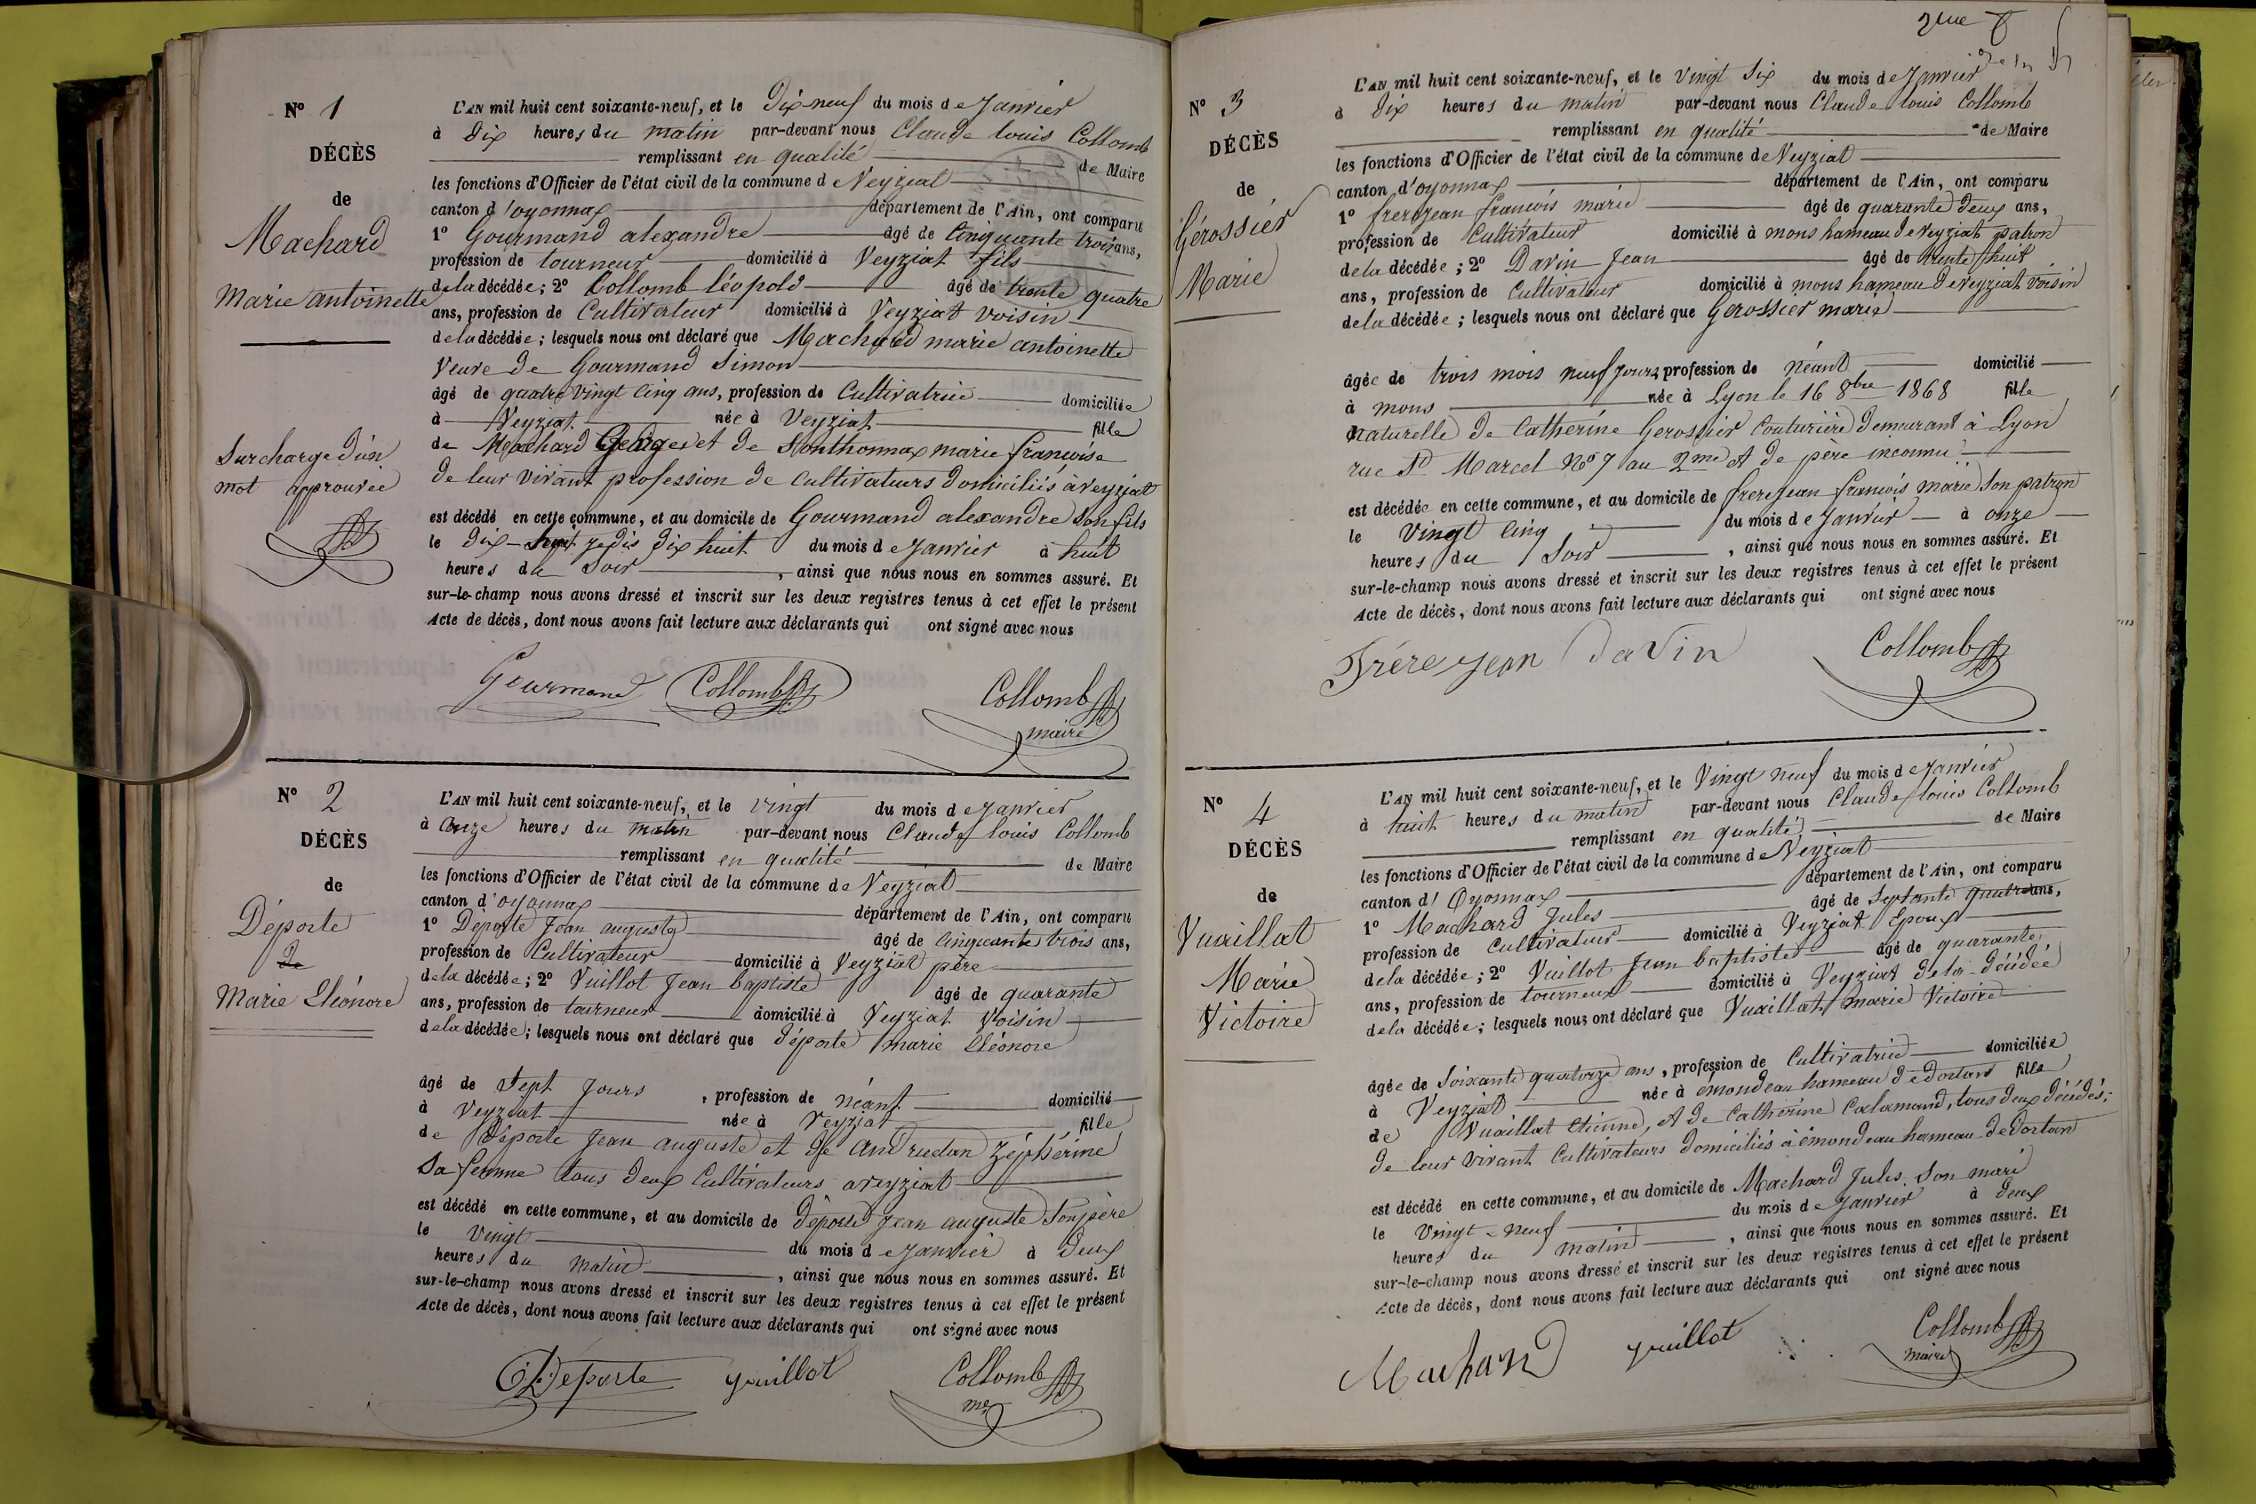 N° 1
DÉCÈS
de
Machard
Marie antoinette
Surcharge d'un
mot approuvée
L'AN mil huit cent soixante-neuf, et le Dix-neuf du mois de Janvier
à Dix heures du matin par-devant nous Claude louis Collomb
remplissant en qualité de Maire
les fonctions d'Officier de l'état civil de la commune de Veyziat
canton d'oyonnax département de l'Ain, ont comparu
1° Gourmand alexandre âgé de Cinquante trois ans,
profession de tourneur domicilié à Veyziat fils
de la décédée; 2° Collomb léopold âgé de trente quatre
ans, profession de Cultivateur domicilié à Veyziat voisin
de la décédée; lesquels nous ont déclaré que Machard marie antoinette
Veuve de Gourmand Simon
âgé de quatre vingt Cinq ans, profession de Cultivatrice domiciliée
à Veyziat née à Veyziat fille
de Machard Georges et de Monthonnax marie françoise
de leur vivant profession de Cultivateurs domiciliés à veyziat
est décédé en cette commune, et au domicile de Gourmand alexandre Son fils
le dix-huit du mois de Janvier à huit
heures du Soir, ainsi que nous nous en sommes assuré. Et
sur-le-champ nous avons dressé et inscrit sur les deux registres tenus à cet effet le présent
Acte de décès, dont nous avons fait lecture aux déclarants qui ont signé avec nous
Gourmand Collomb Collomb
maire
N° 2
DÉCÈS
de
Déporte
de
Marie Eléonore
L'AN mil huit cent soixante-neuf, et le vingt du mois de Janvier
à Onze heures du matin par-devant nous Claude louis Collomb
remplissant en qualité de Maire
les fonctions d'Officier de l'état civil de la commune de Veyziat
canton d'oyonnax département de l'Ain, ont comparu
1° Déporte Jean auguste âgé de Cinquante trois ans,
profession de Cultivateur domicilié à Veyziat père
de la décédée; 2° Vuillot Jean baptiste âgé de quarante
ans, profession de tourneur domicilié à Veyziat voisin
de la décédée; lesquels nous ont déclaré que déporte marie Eléonore
âgé de Sept Jours, profession de néant domicilié
à Veyziat née à Veyziat fille
de Déporte Jean auguste et de Andruetan Zéphérine
Sa femme tous deux Cultivateurs a veyziat
est décédé en cette commune, et au domicile de déporte Jean auguste Son père
le vingt du mois de Janvier à Deux
heures du matin, ainsi que nous nous en sommes assuré. Et
sur-le-champ nous avons dressé et inscrit sur les deux registres tenus à cet effet le présent
Acte de décès, dont nous avons fait lecture aux déclarants qui ont signé avec nous
Déporte vuillot Collomb
me
2me
N° 3
DÉCÈS
de
Gérossier
Marie
L'AN mil huit cent soixante-neuf, et le vingt Six du mois de Janvier
à Dix heures du matin par-devant nous Claude louis Collomb
remplissant en qualité de Maire
les fonctions d'Officier de l'état civil de la commune de Veyziat
canton d'oyonnax département de l'Ain, ont comparu
1° frerejean francois marie âgé de quarante deux ans,
profession de Cultivateur domicilié à mons hameau de veyziat patron
de la décédée; 2° Davin Jean âgé de trente huit
ans, profession de Cultivateur domicilié à mons hameau de veyziat voisin
de la décédée; lesquels nous ont déclaré que Gerossier marie
âgée de trois mois neuf Jours, profession de néant domicilié
à mons née à Lyon le 16 8bre 1868 fille
naturelle de Catherine Gerossier Couturière demeurant à Lyon
rue St Marcel No 7 au 2me et de père inconnu
est décédée en cette commune, et au domicile de frerejean francois marie Son patron
le Vingt Cinq du mois de Janvier à onze
heures du Soir, ainsi que nous nous en sommes assuré. Et
sur-le-champ nous avons dressé et inscrit sur les deux registres tenus à cet effet le présent
Acte de décès, dont nous avons fait lecture aux déclarants qui ont signé avec nous
Frére jean davin Collomb
N° 4
DÉCÈS
de
Vuaillat
Marie
Victoire
L'AN mil huit cent soixante-neuf, et le Vingt neuf du mois de Janvier
à huit heures du matin par-devant nous Claude louis Collomb
remplissant en qualité de Maire
les fonctions d'Officier de l'état civil de la commune de Veyziat
canton d'Oyonnax département de l'Ain, ont comparu
1° Machard Jules âgé de Septante quatre ans,
profession de Cultivateur domicilié à Veyziat Epoux
de la décédée; 2° Vuillot Jean baptiste âgé de quarante
ans, profession de tourneur domicilié à Veyziat de la décédée
de la décédée; lesquels nous ont déclaré que Vuaillat marie Victoire
âgée de Soixante quatorze ans, profession de Cultivatrice domiciliée
à Veyziat née à émondeau hameau de dortan fille
de Vuaillat Etienne, et de Catherine Calamand, tous deux décédés;
de leur vivant Cultivateurs domiciliés à émondeau hameau de Dortan
est décédé en cette commune, et au domicile de Machard Jules Son mari
le Vingt-neuf du mois de Janvier à Deux
heures du matin, ainsi que nous nous en sommes assuré. Et
sur-le-champ nous avons dressé et inscrit sur les deux registres tenus à cet effet le présent
Acte de décès, dont nous avons fait lecture aux déclarants qui ont signé avec nous
Machard vuillot Collomb
maire